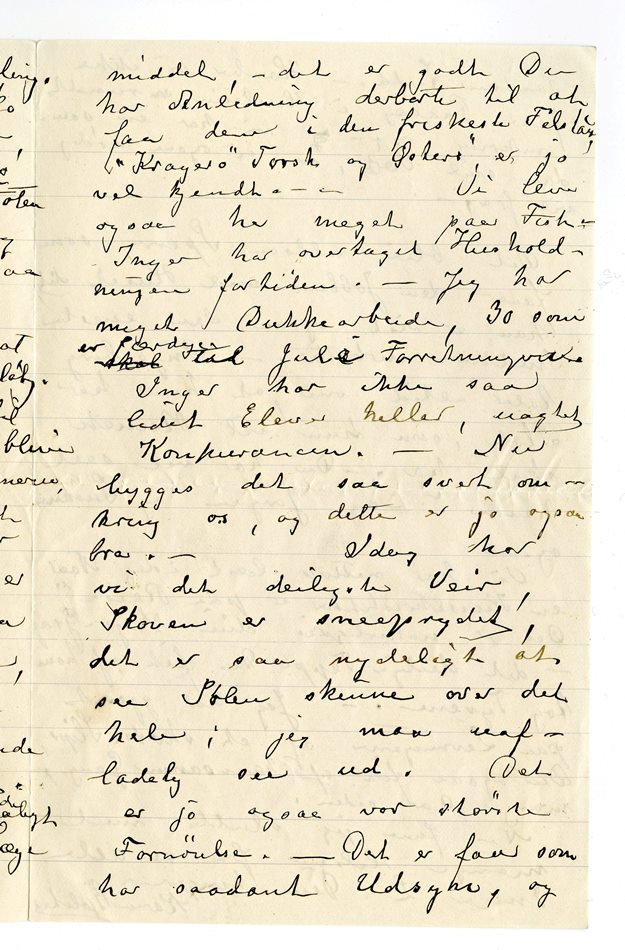 middel, – det er godt Du
har Anledning derborte til at
faa dem i den friskeste Tilstand,
"Kragerö" Torsk og Østers", er jo
vel kjendt. – – Vi lever
ogsaa her meget paa Fisk. –
Inger har overtaget Hushold-
ningen fortiden. – Jeg har
meget Dukkearbeide, 30 som
er færdige
skal til Jule Forretningerne
Inger har ikke saa
lidet Elever heller, uagtet
Konkurancen. – Nu
bygges det saa svert om-
kring os, og dette er jo ogsaa
bra. – Idag har
vi det deiligste Veir,
Skoven er sneeprydet,
det er saa nydeligt at
see Solen skinne over det
hele; jeg maa uaf-
ladelig see ud. Det
er jo ogsaa vor störste
Fornöielse. – Det er faa som
har saadant Udsyn, og